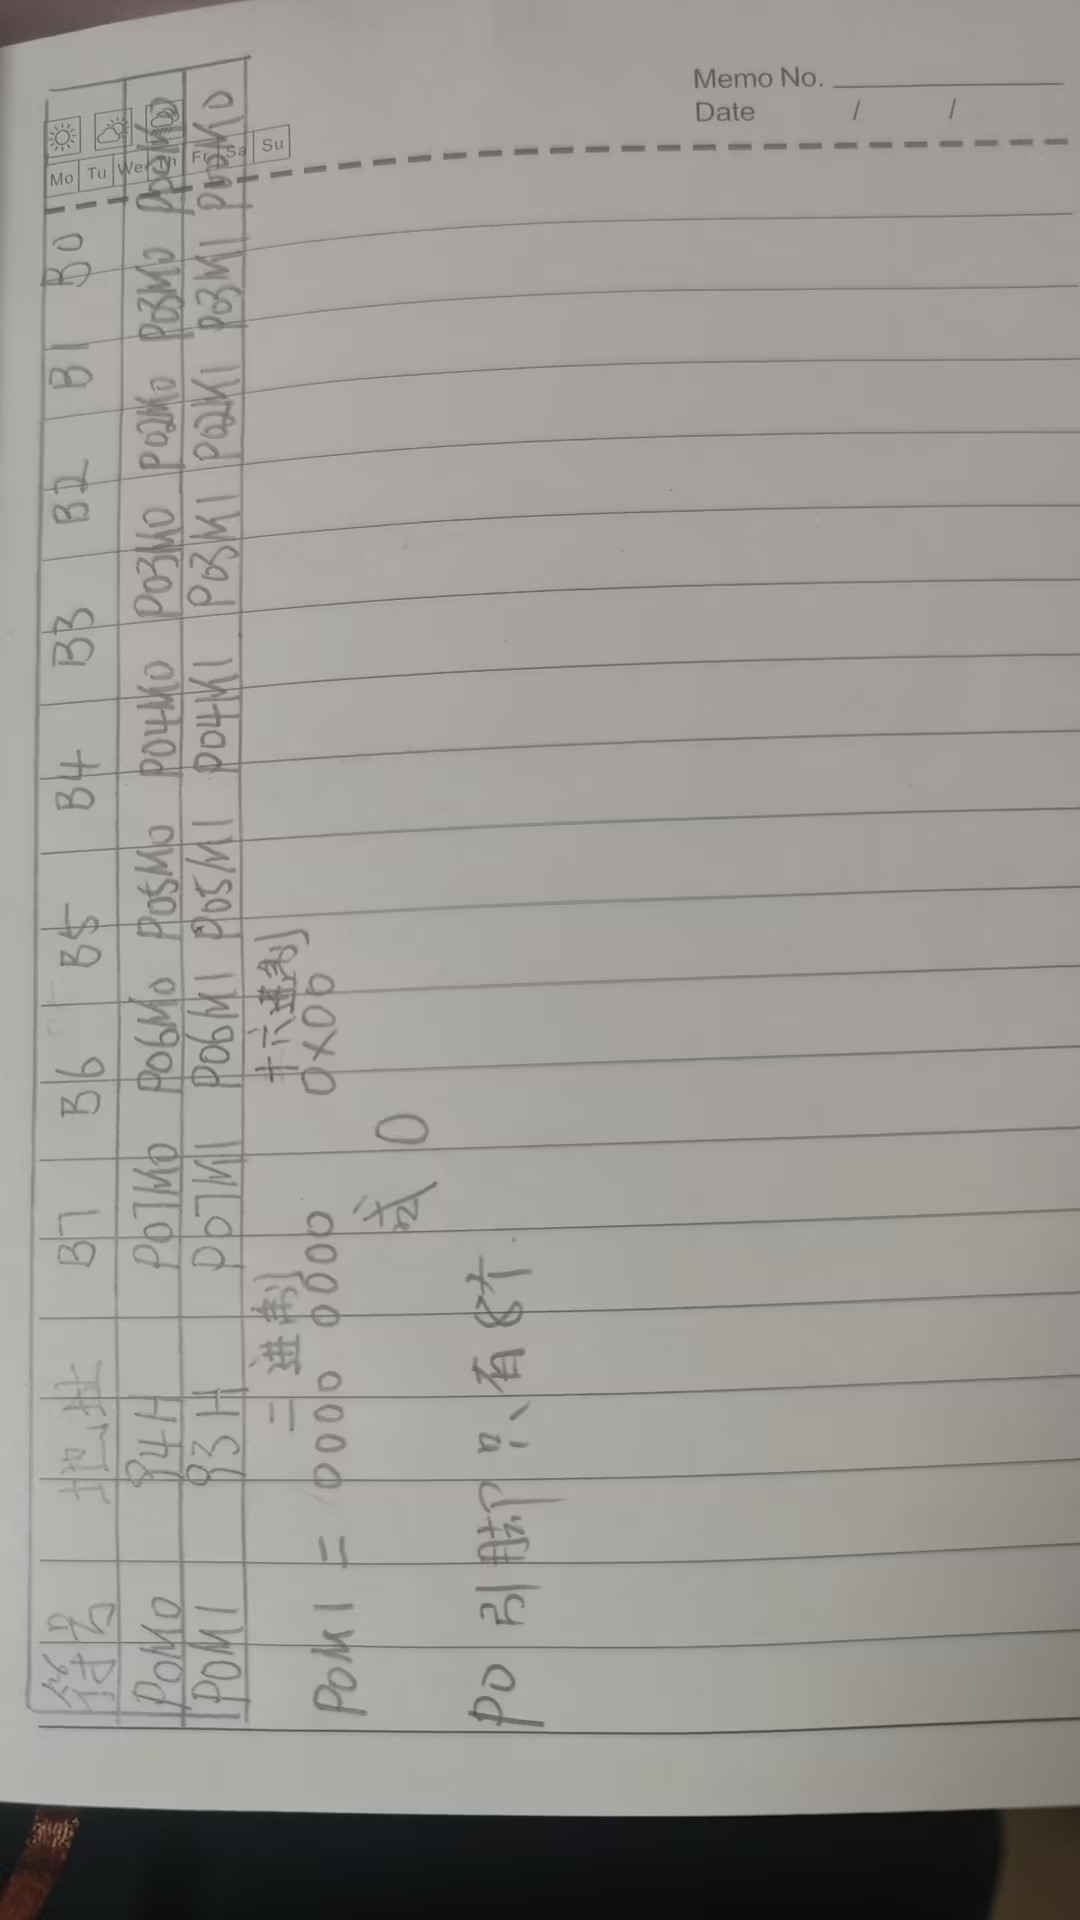 Memo No.
Date / /
Mo Tu We Th Fr Sa Su
符号 地址 B7 B6 B5 B4 B3 B2 B1 B0
P0M0 94H P07M0 P06M0 P05M0 P04M0 P03M0 P02M0 P03M0
P0M1 93H P07M1 P06M1 P05M1 P04M1 P03M1 P02M1 P03M1
二进制 十六进制
P0M1 = 0000 0000 0x00
或 0
P0 引脚只有8个.